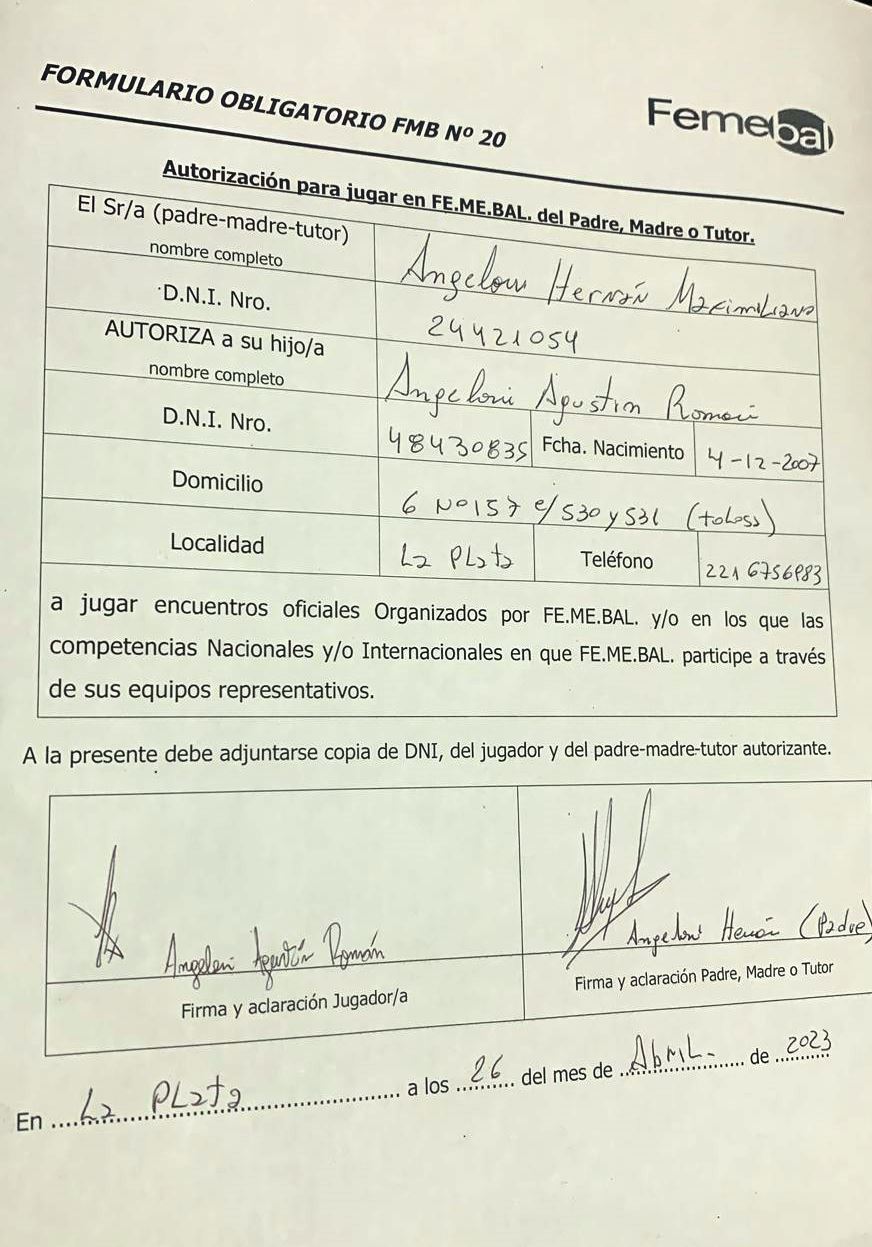 FORMULARIO OBLIGATORIO FMB Nº 20
Femebal
Autorización para jugar en FE.ME.BAL. del Padre, Madre o Tutor.
El Sr/a (padre-madre-tutor)
nombre completo
Angeloni Hernán Maximiliano
D.N.I. Nro.
24421054
AUTORIZA a su hijo/a
nombre completo
Angeloni Agustin Roman
D.N.I. Nro.
48430835
Fcha. Nacimiento
4-12-2007
Domicilio
6 Nº 157 e/ 530 y 531 (tolosa)
Localidad
La Plata
Teléfono
221 6756983
a jugar encuentros oficiales Organizados por FE.ME.BAL. y/o en los que las
competencias Nacionales y/o Internacionales en que FE.ME.BAL. participe a través
de sus equipos representativos.
A la presente debe adjuntarse copia de DNI, del jugador y del padre-madre-tutor autorizante.
Angeloni Agustín Román
Firma y aclaración Jugador/a
Angeloni Hernán (Padre)
Firma y aclaración Padre, Madre o Tutor
En La Plata a los 26 del mes de Abril de 2023